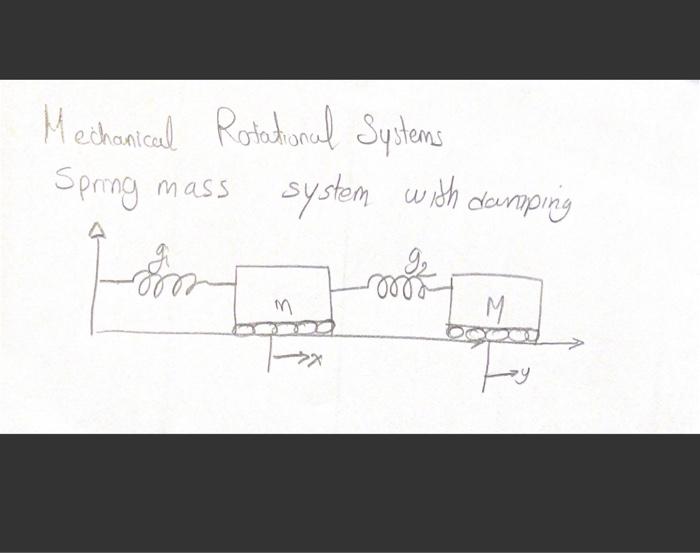 Mechanical Rotational Systems
Spring mass system with damping
g1 g2
m M
x y